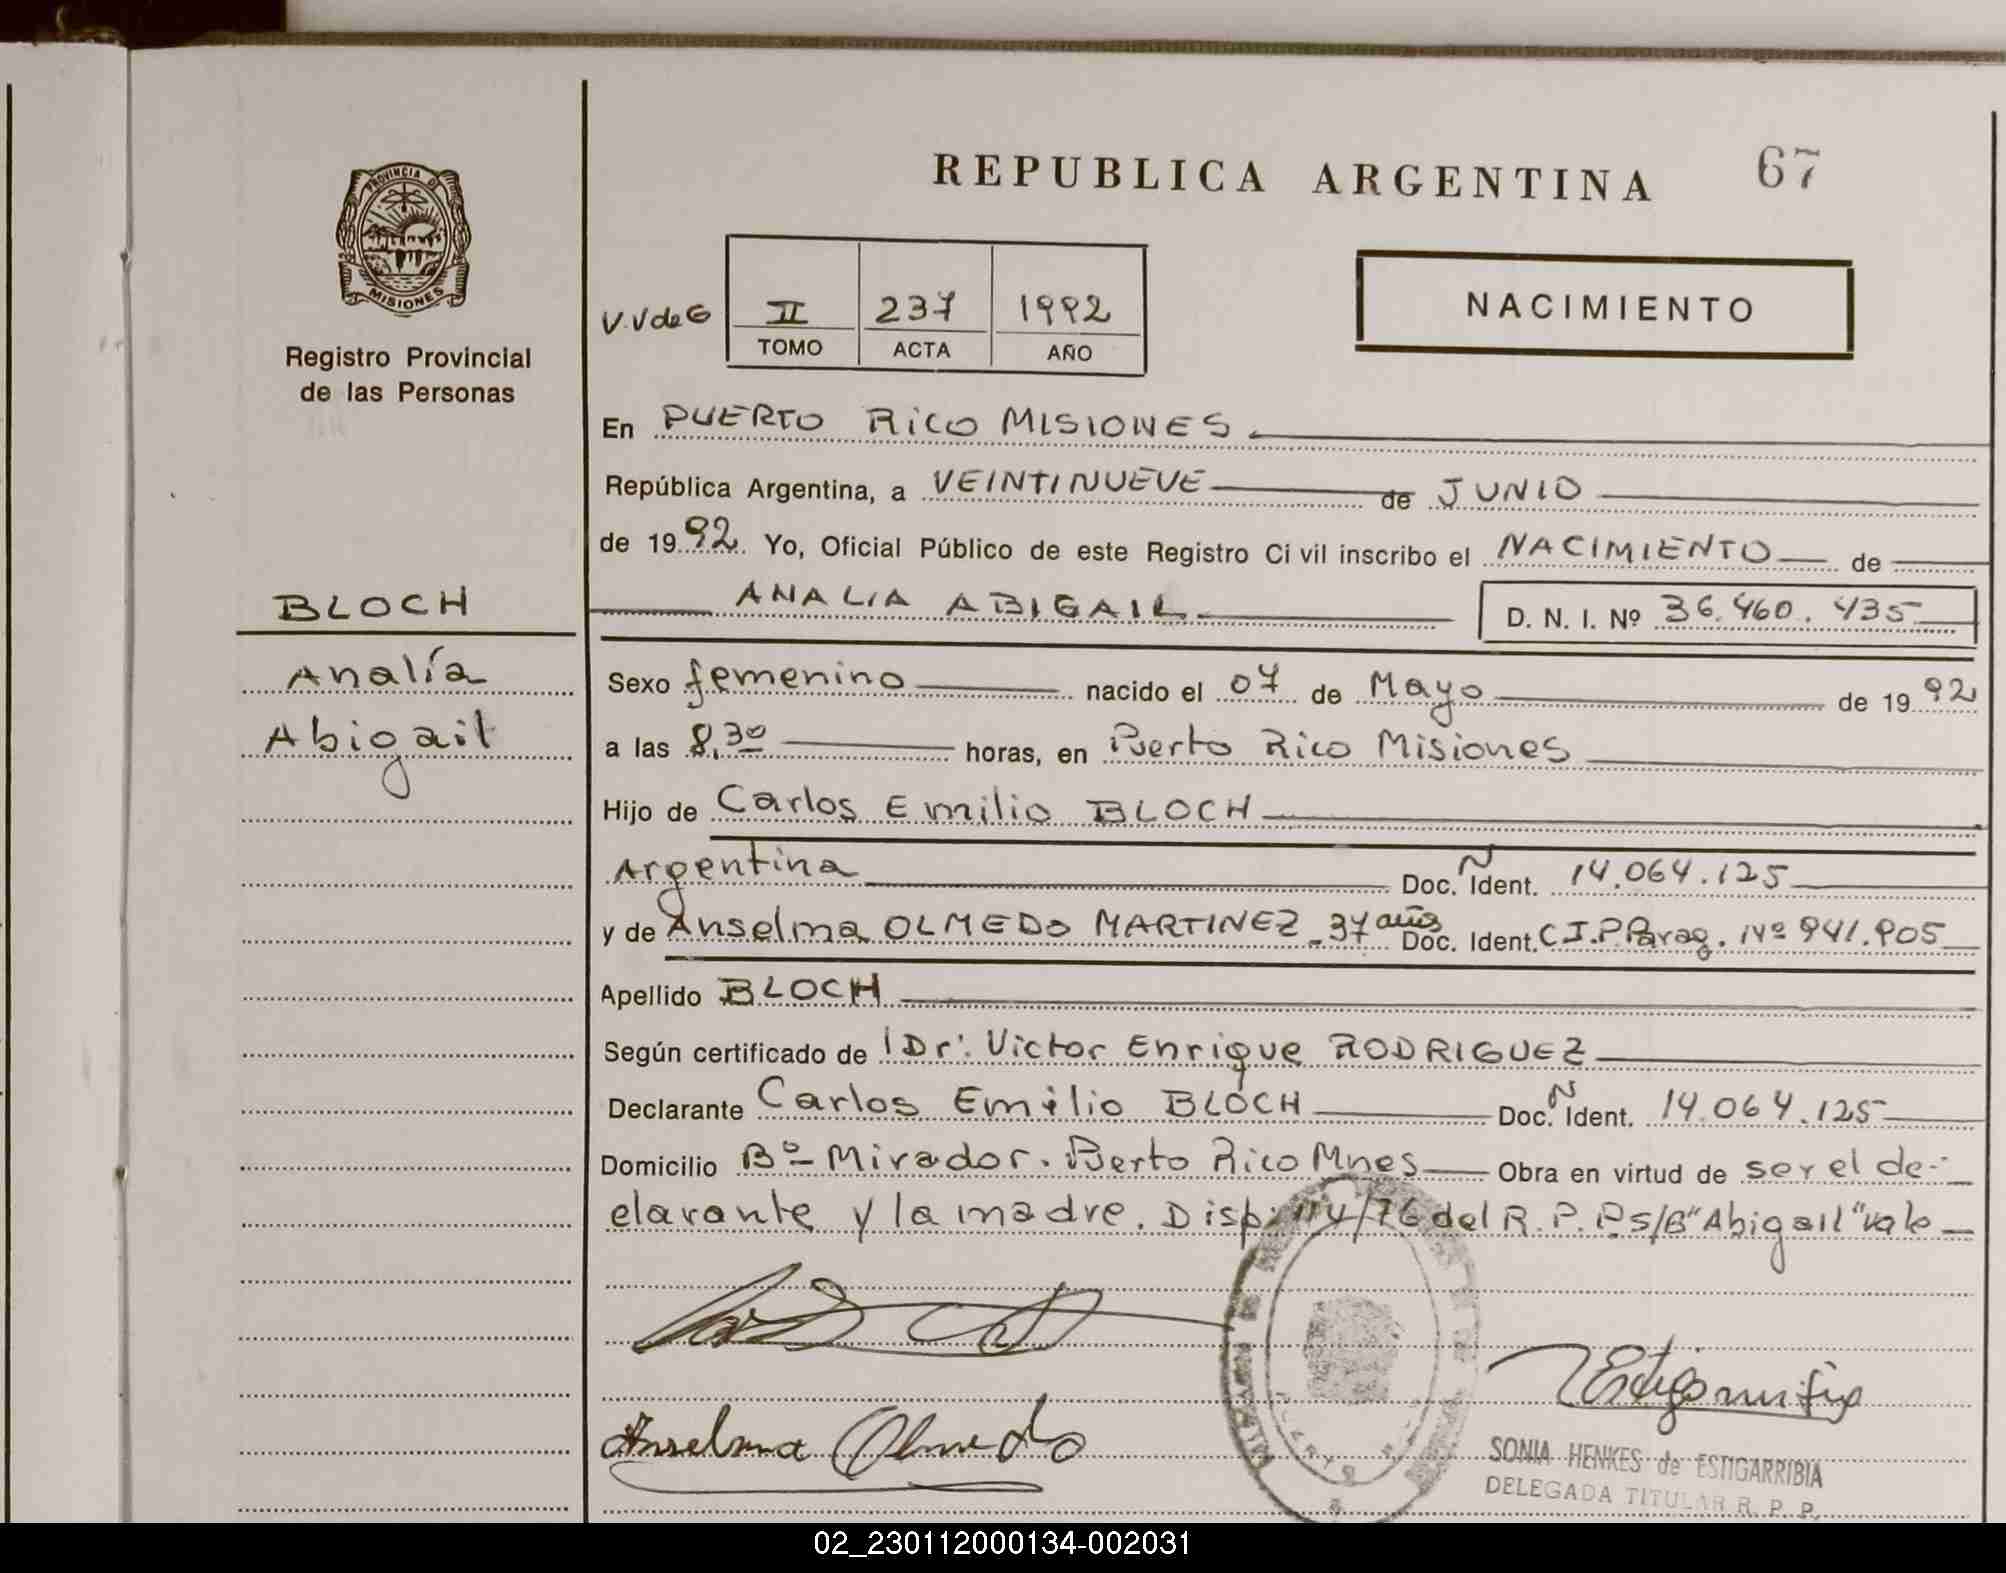 REPUBLICA ARGENTINA 67
PROVINCIA DE
MISIONES
Registro Provincial
de las Personas
V.V de G II 237 1992
TOMO ACTA AÑO
NACIMIENTO
En PUERTO RICO MISIONES
República Argentina, a VEINTINUEVE de JUNIO
de 1992. Yo, Oficial Público de este Registro Civil inscribo el NACIMIENTO de
ANALIA ABIGAIL D. N. I. Nº 36.460.435
BLOCH
Analía
Abigail
Sexo femenino nacido el 07 de Mayo de 1992
a las 8,30 horas, en Puerto Rico Misiones
Hijo de Carlos Emilio BLOCH
Argentina Doc. N Ident. 14.064.125
y de Anselma OLMEDO MARTINEZ - 37 años Doc. Ident. C.I.P. Parag. Nº 941.905
Apellido BLOCH
Según certificado de Dr. Victor Enrique RODRIGUEZ
Declarante Carlos Emilio BLOCH Doc. N Ident. 14.064.125
Domicilio Bº Mirador. Puerto Rico Mnes Obra en virtud de ser el de-
clarante y la madre. Disp. 114/76 del R.P.P. S/B "Abigail" vale
Anselma Olmedo
SONIA HENKES de ESTIGARRIBIA
DELEGADA TITULAR R. P. P.
02_230112000134-002031